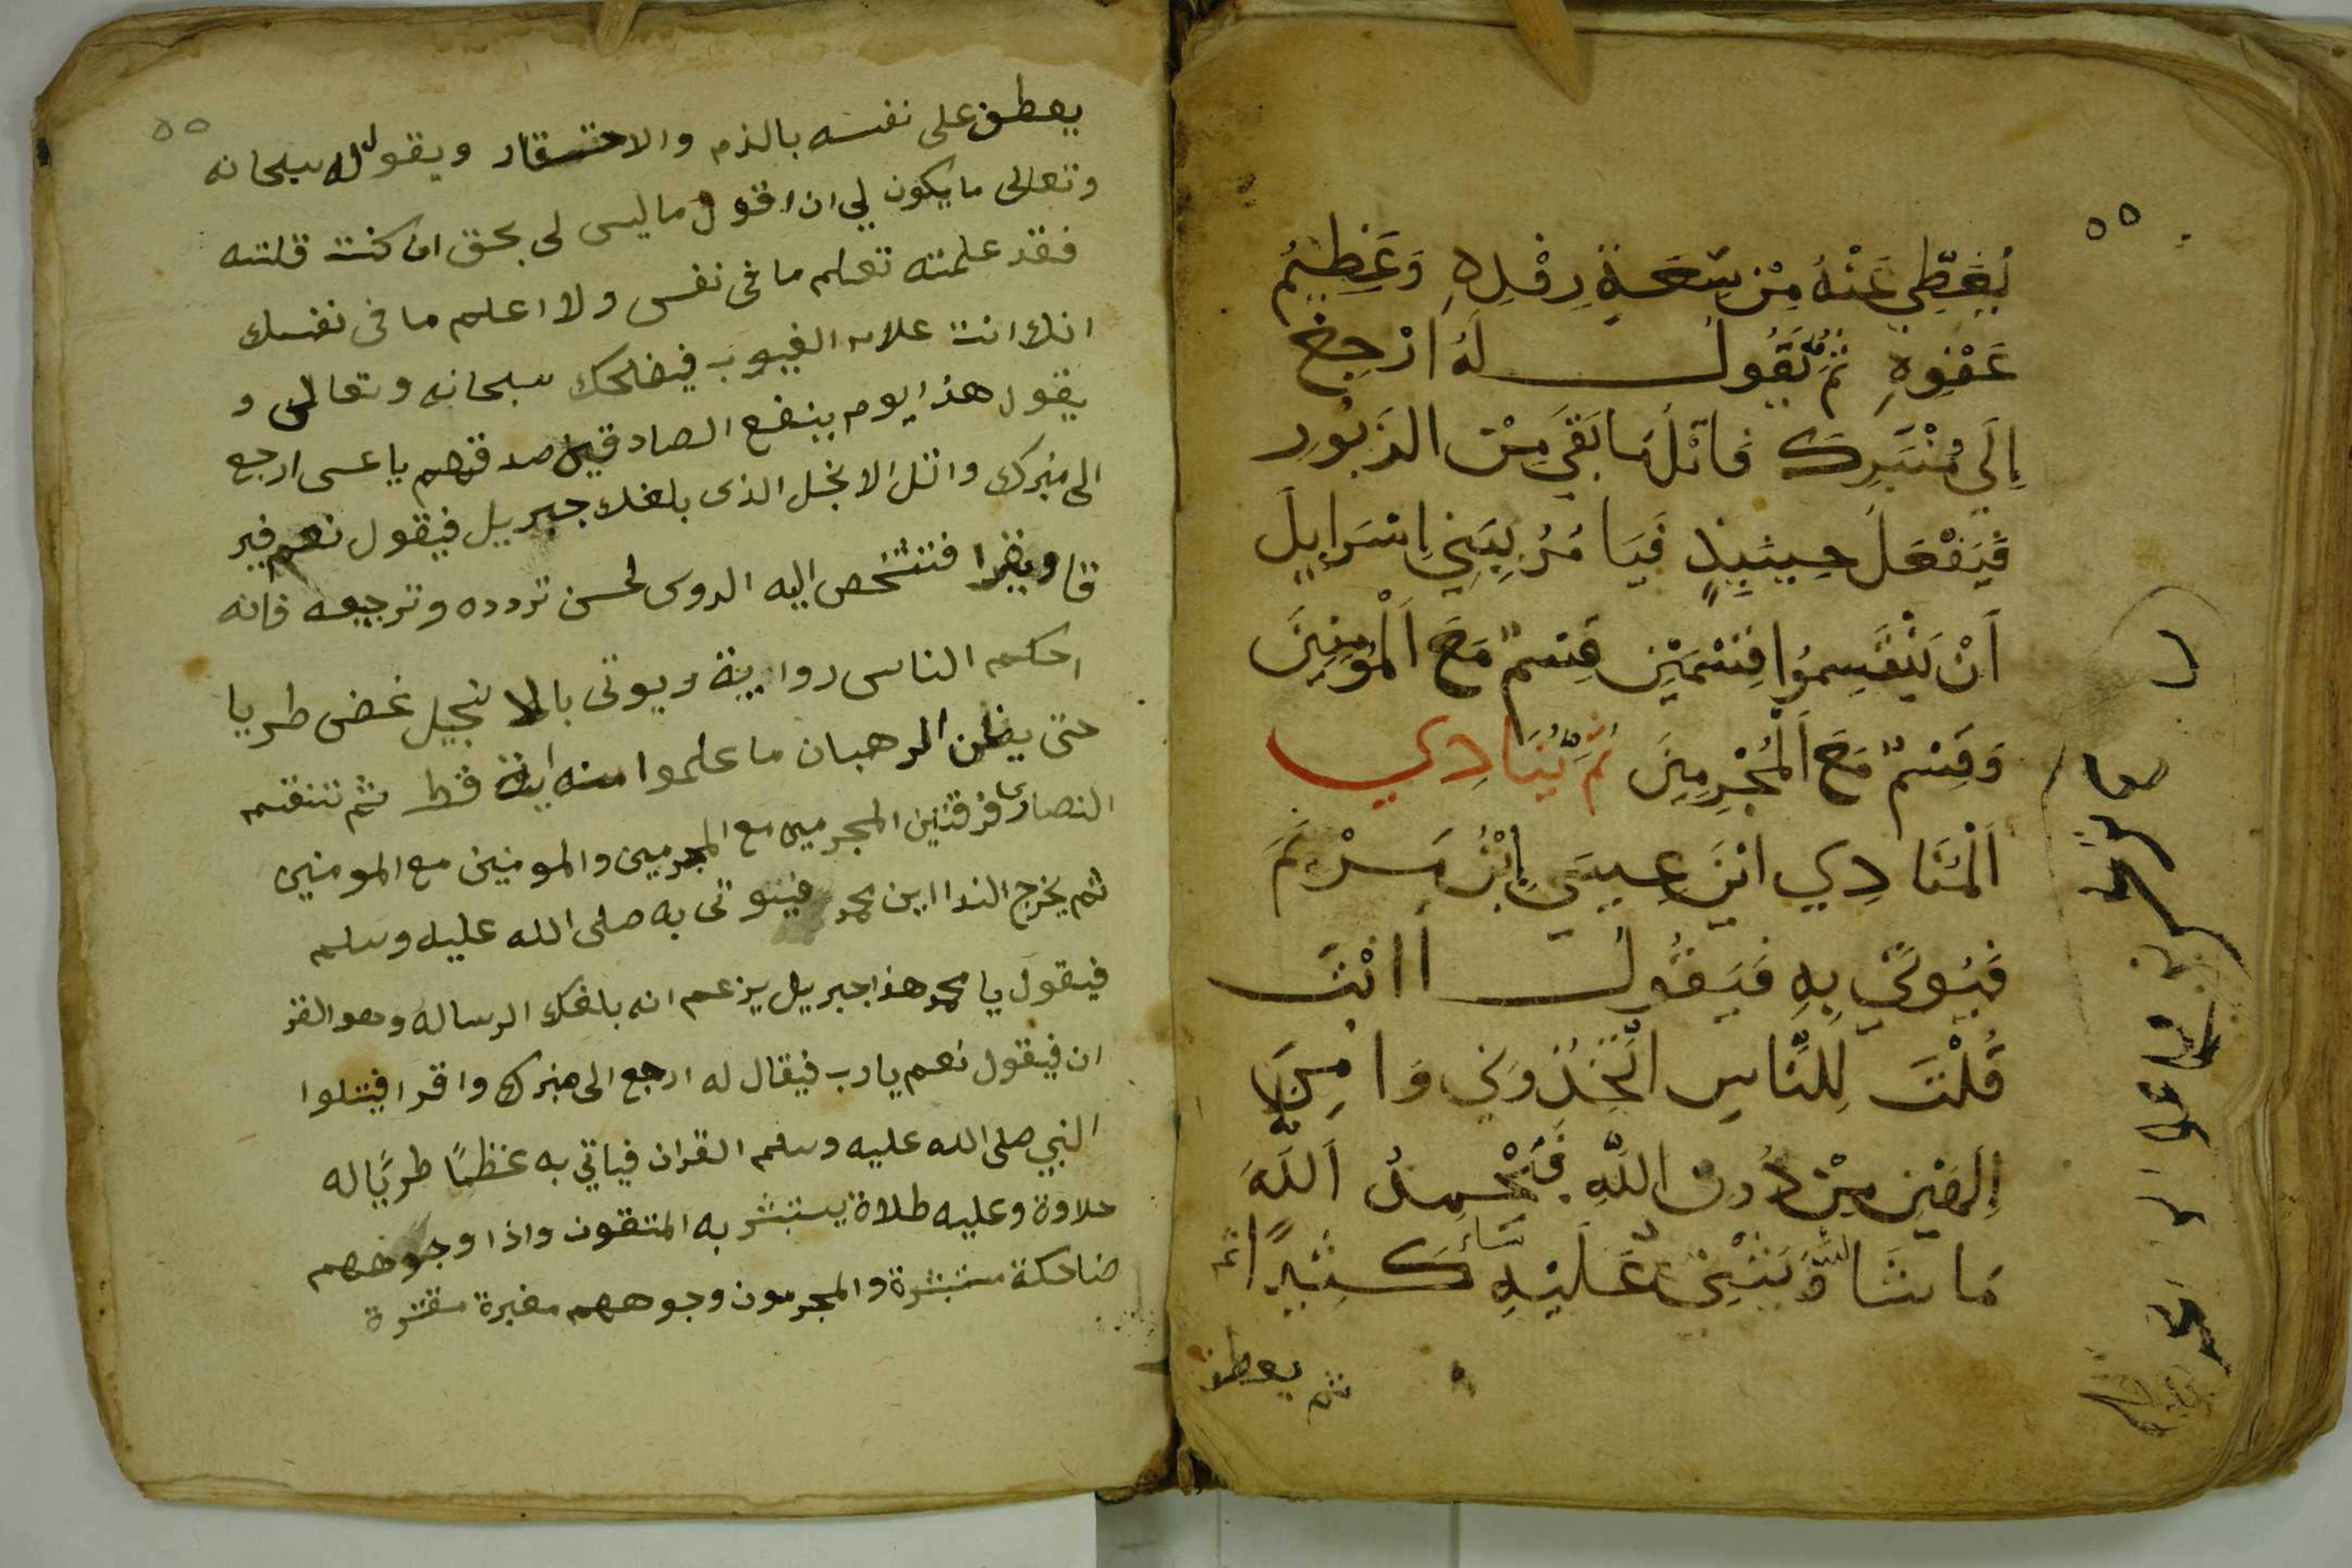 ٥٥
يُغَطِّي عَنْهُ مِنْ سَعَةِ رِفْلِهِ وَعَظِيمُ
عَفْوِهِ ثُمَّ يَقُولُ لَهُ ارْجِعْ
إِلَي مُنْبَرِكَ فَاتْلُ مَا بَقَيَ مِنْ الزَّبُورِ
فَيَفْعَلَ حِينَيِذٍ فَيَا مُرُ بِبَنِي اِسْرَايِيلَ
أَنْ يَنْقَسِمُوا قِسْمَيْنِ قِسْمٌ مَعَ اَلْمُؤْمِنِينَ
وَقِسْمٌ مَعَ اَلْمُجْرِمِينَ ثُمَّ يُنَادِي
اَلْمُنَادِي ايْنَ عِيسَي اِبْنُ مَرْيَمَ
فَيُوتَي بِهِ فَيَقُولُ أَ انْتَ
قُلْتَ لِلنَّاسِ اتَّخِذُونِي وَامِّيَ
اِلَهَيْنِ مِنْ دُونِ اللَّهِ فَيَحْمِدُ اَللَّهَ
مَا شَا اللَّهُ وَيَثْنِي عَلَيْهِ ثَنَاءً كَثِيرًا ثم
ثم يعطف
٥٥
يعطف على نفسه بالذم والاحتقار ويقول له سبحانه
وتعالى ما يكون لي ان اقول ما ليس لى بحق ان كنت قلته
فقد علمته تعلم ما فى نفسى ولا اعلم ما فى نفسك
انك انت علام الغيوب فيضحك سبحانه وتعالى و
يقول هذا يوم ينفع الصادقين صدقهم يا عسى ارجع
الى منبرك واتل الانجل الذى بلغك جبريل فيقول نعم فير
قا ويقرا فتشخص اليه الروس لحسن تردده وترجيعه فانه
احكم الناس رواية ويوتى بالانجيل غض طريا
حتى يظن الرهبان ما علموا منه اية قط ثم تنقسم
النصارى فرقتين المجرمين مع المجرمين والمومنين مع المومنين
ثم يخرج الندا اين محمد فيوتى به صلى الله عليه وسلم
فيقول يا محمد هذا جبريل يزعم انه بلغك الرساله وهو القر
ان فيقول نعم يارب فيقال له ارجع الى منبرك واقرا فيتلوا
النبي صلى الله عليه وسلم القران فياتي به غظًا طريًا له
حلاوة وعليه طلاة يستبشر به المتقون واذا وجوههم
ضاحكة مستبشرة والمجرمون وجوههم مغبرة مقترة